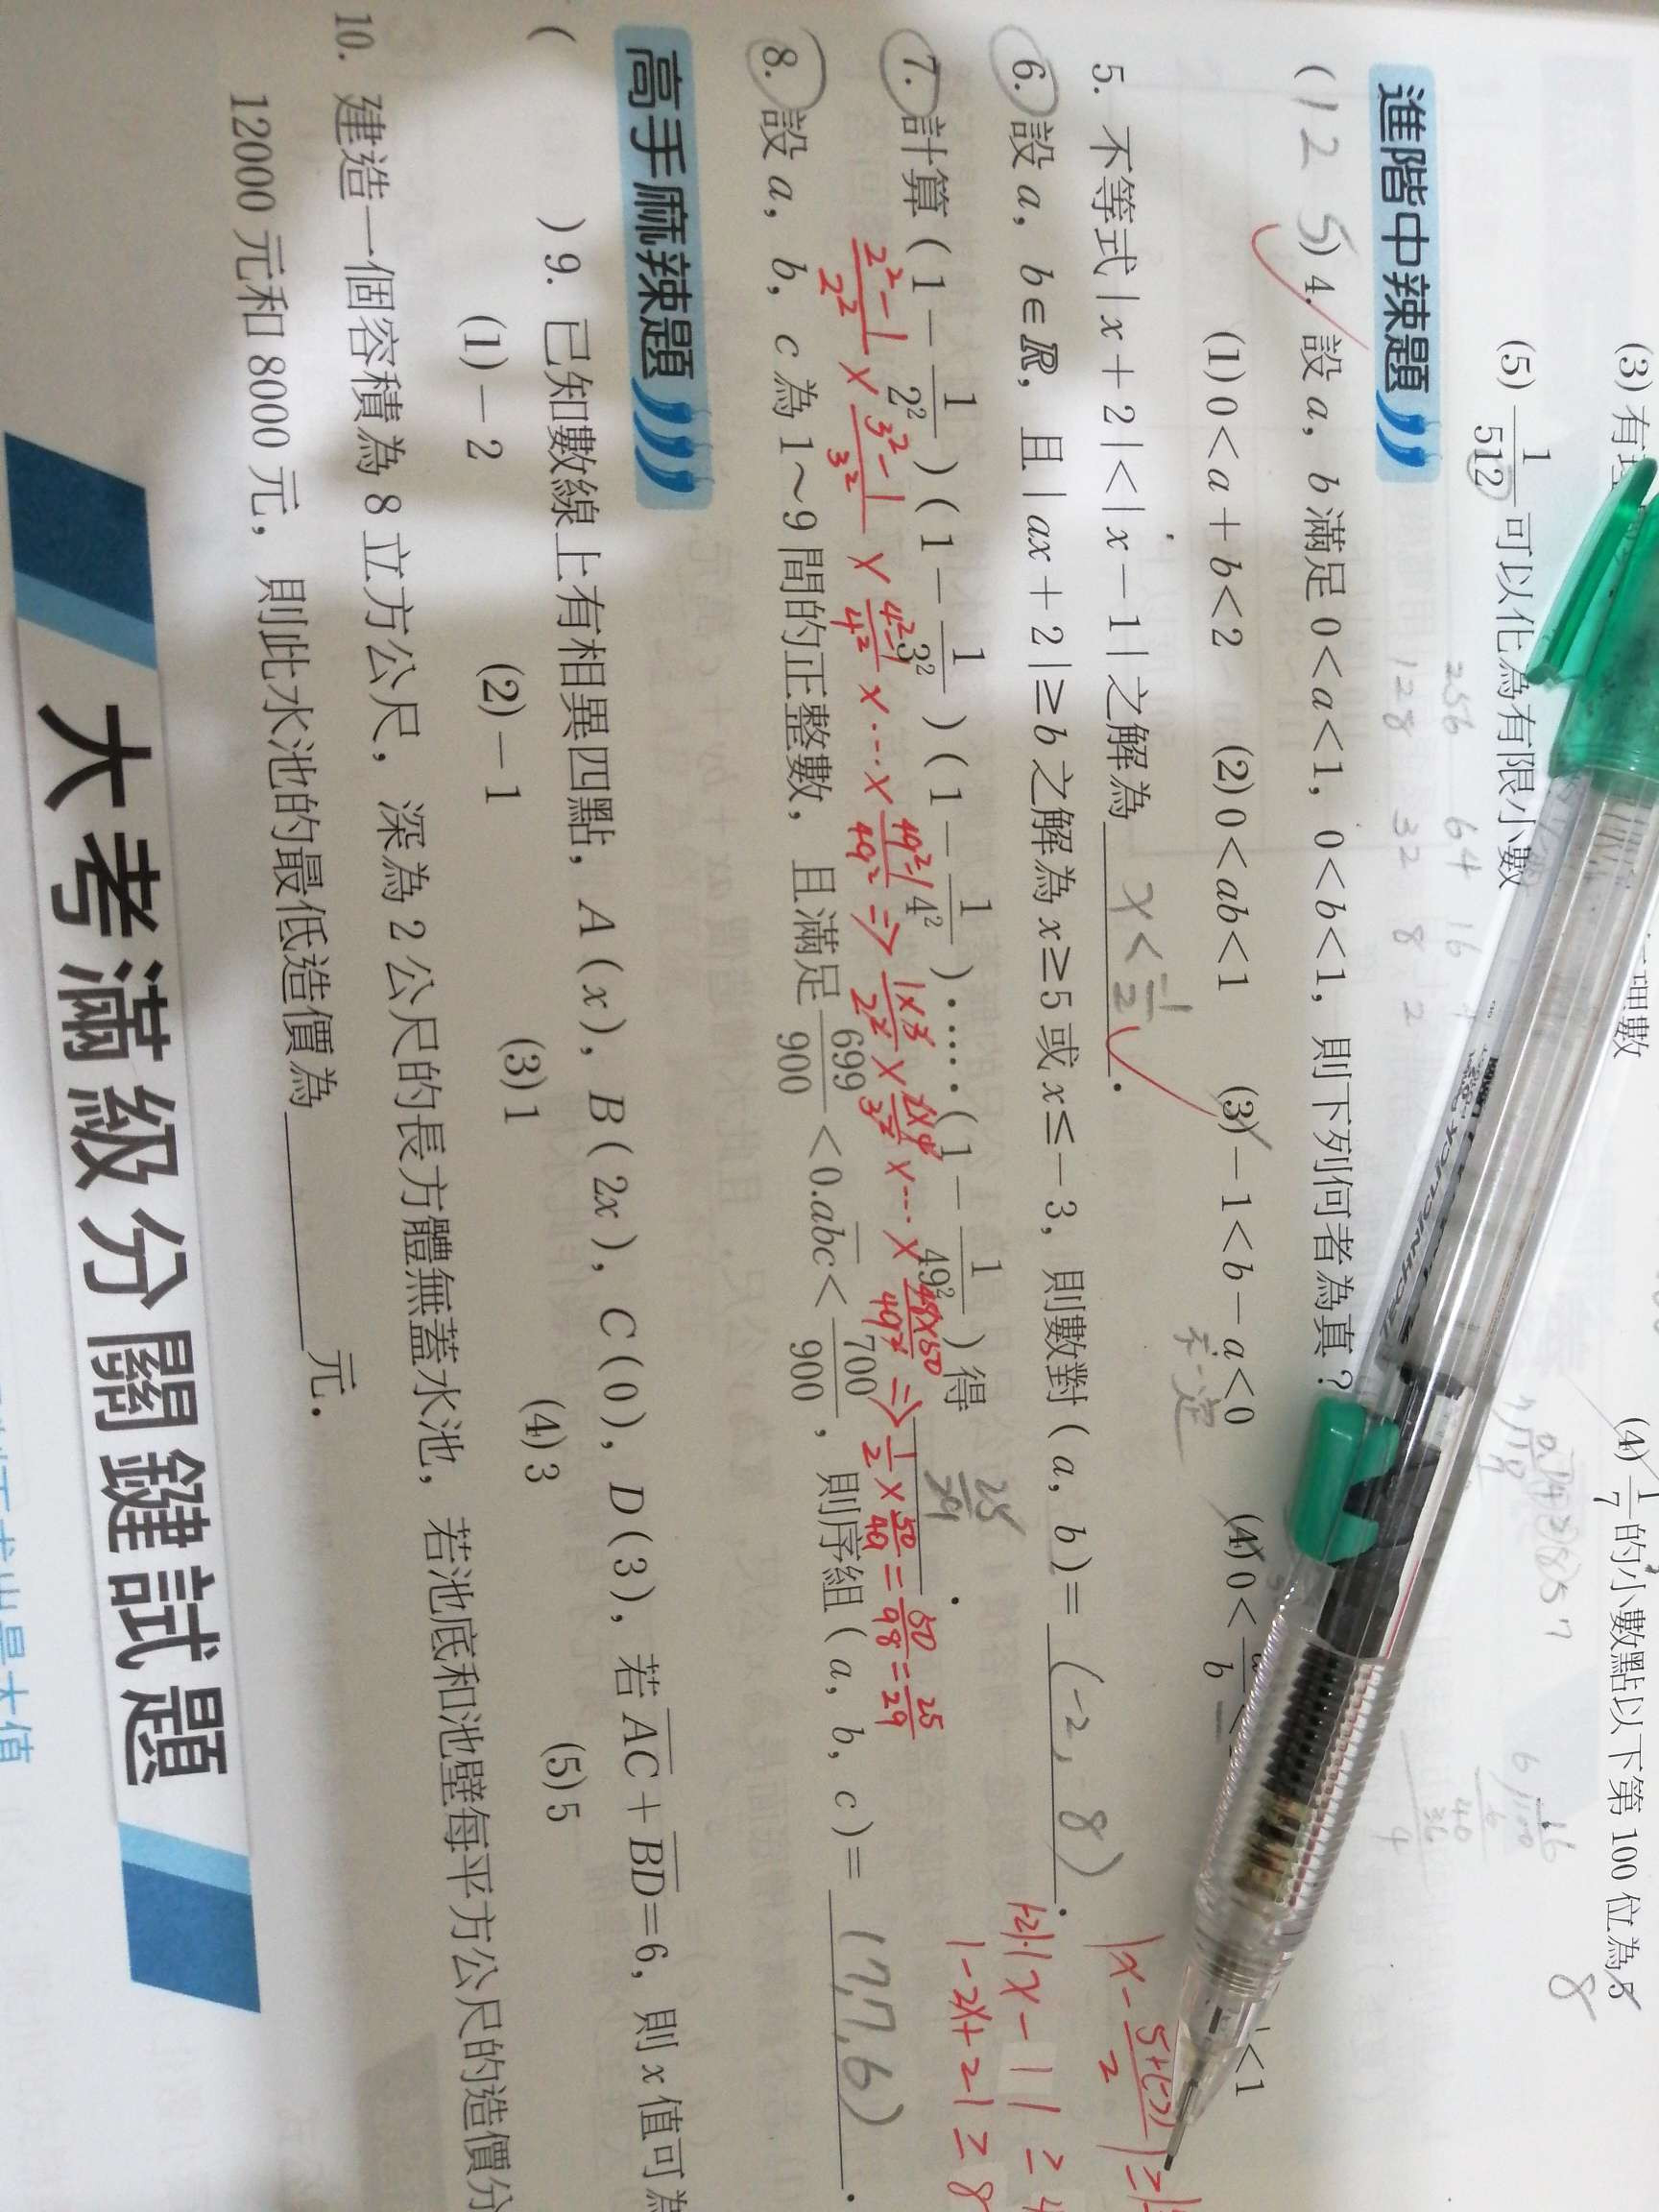 (3) 有
理數
(4) 1/7 的小數點以下第 100 位為 8
8
(5) 1/512 可以化為有限小數
256 64 16
128 32 8 2
進階中辣題
(1 2 5) 4. 設 a, b 滿足 0 < a < 1, 0 < b < 1, 則下列何者為真?
(1) 0 < a + b < 2 (2) 0 < ab < 1 (3) −1 < b − a < 0 (4) 0 <
< 1
不一定
5. 不等式 | x + 2 | < | x − 1 | 之解為 x < -1/2 .
6. 設 a, b ∈ ℝ, 且 | ax + 2 | ≥ b 之解為 x ≥ 5 或 x ≤ −3, 則數對 ( a, b ) = (-2, 8) .
|x - 5+(-3)/2| ≥
|-2|·|x - 1| ≥ 4
|-2x + 2| ≥ 8
7. 計算 ( 1 − 1/2² ) ( 1 − 1/3² ) ( 1 − 1/4² ) ⋯⋯ ( 1 − 1/49² ) 得 25/29 .
2²-1/2² × 3²-1/3² × 4²-1/4² × ⋯ × 49²-1/49² ⇒ 1×3/2² × 2×4/3² × ⋯ × 48×50/49² ⇒ 1/2 × 50/49 = 50/98 = 25/29
8. 設 a, b, c 為 1～9 間的正整數, 且滿足 699/900 < 0.ab\overline{c} < 700/900, 則序組 ( a, b, c ) = (7,7,6) .
高手麻辣題
( ) 9. 已知數線上有相異四點, A ( x ), B ( 2x ), C ( 0 ), D ( 3 ), 若 \overline{AC} + \overline{BD} = 6, 則 x 值可為
(1) − 2 (2) − 1 (3) 1 (4) 3 (5) 5
10. 建造一個容積為 8 立方公尺, 深為 2 公尺的長方體無蓋水池, 若池底和池壁每平方公尺的造價分
12000 元和 8000 元, 則此水池的最低造價為 元.
大考滿級分關鍵試題